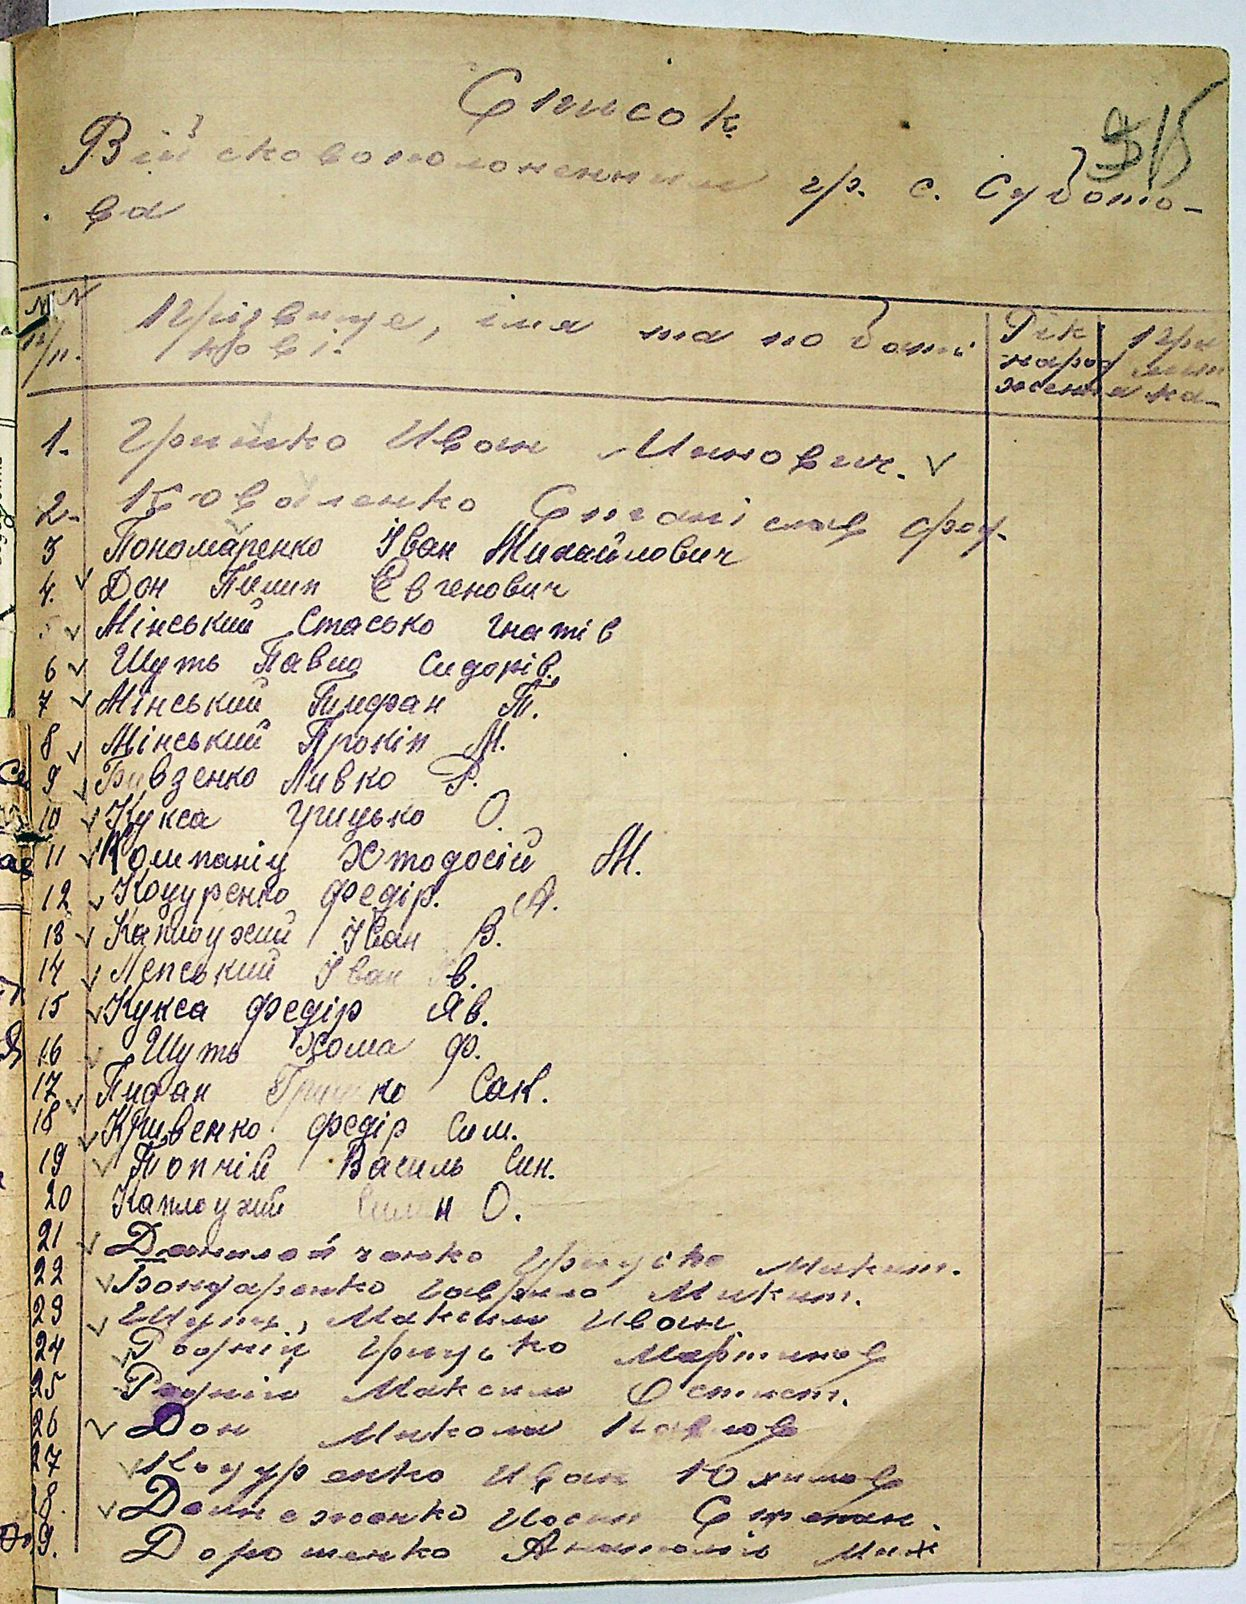 Список
Військовополонених гр. с. Субото-
ва
№№ п/п. Прізвище, імя та по батькові. Рік народження Примітка
1. Гришко Иван Минович.
2. Коваленко Станіслав фед.
3 Пономаренко Іван Михайлович
4. Дон Пилип Евгенович
Мінський Стасько Гнатів
6 Шуть Павло Сидорів.
7 Мінський Тимфан Т.
8 Мінський Прокіп М.
9 Бивзенко Ливко Р.
10 Кукса Грицько О.
11 Компаніц Хтодосій М.
12 Коцуренко Федір. А.
13 Каплоухий Іван В.
14 Лепський Іван Ів.
15 Кукса Федір Яв.
16 Шуть Хома Ф.
17 Пифан Гришко Сак.
18 Кривенко Федір Сим.
19 Топчій Василь Сик.
20 Каплоухий Симон О.
21 Данилейченко Грицько Микит.
22 Бондаренко Гаврило Микит.
23 Шуть, Максим Иван.
24 Родній Грицько Мартинов
25 Родній Максим Остист.
26 Дон Микола Павлов
27 Коцуренко Иван Юхимов
8. Долженко Иосип Степан.
9. Дорошенко Анатолій Мих